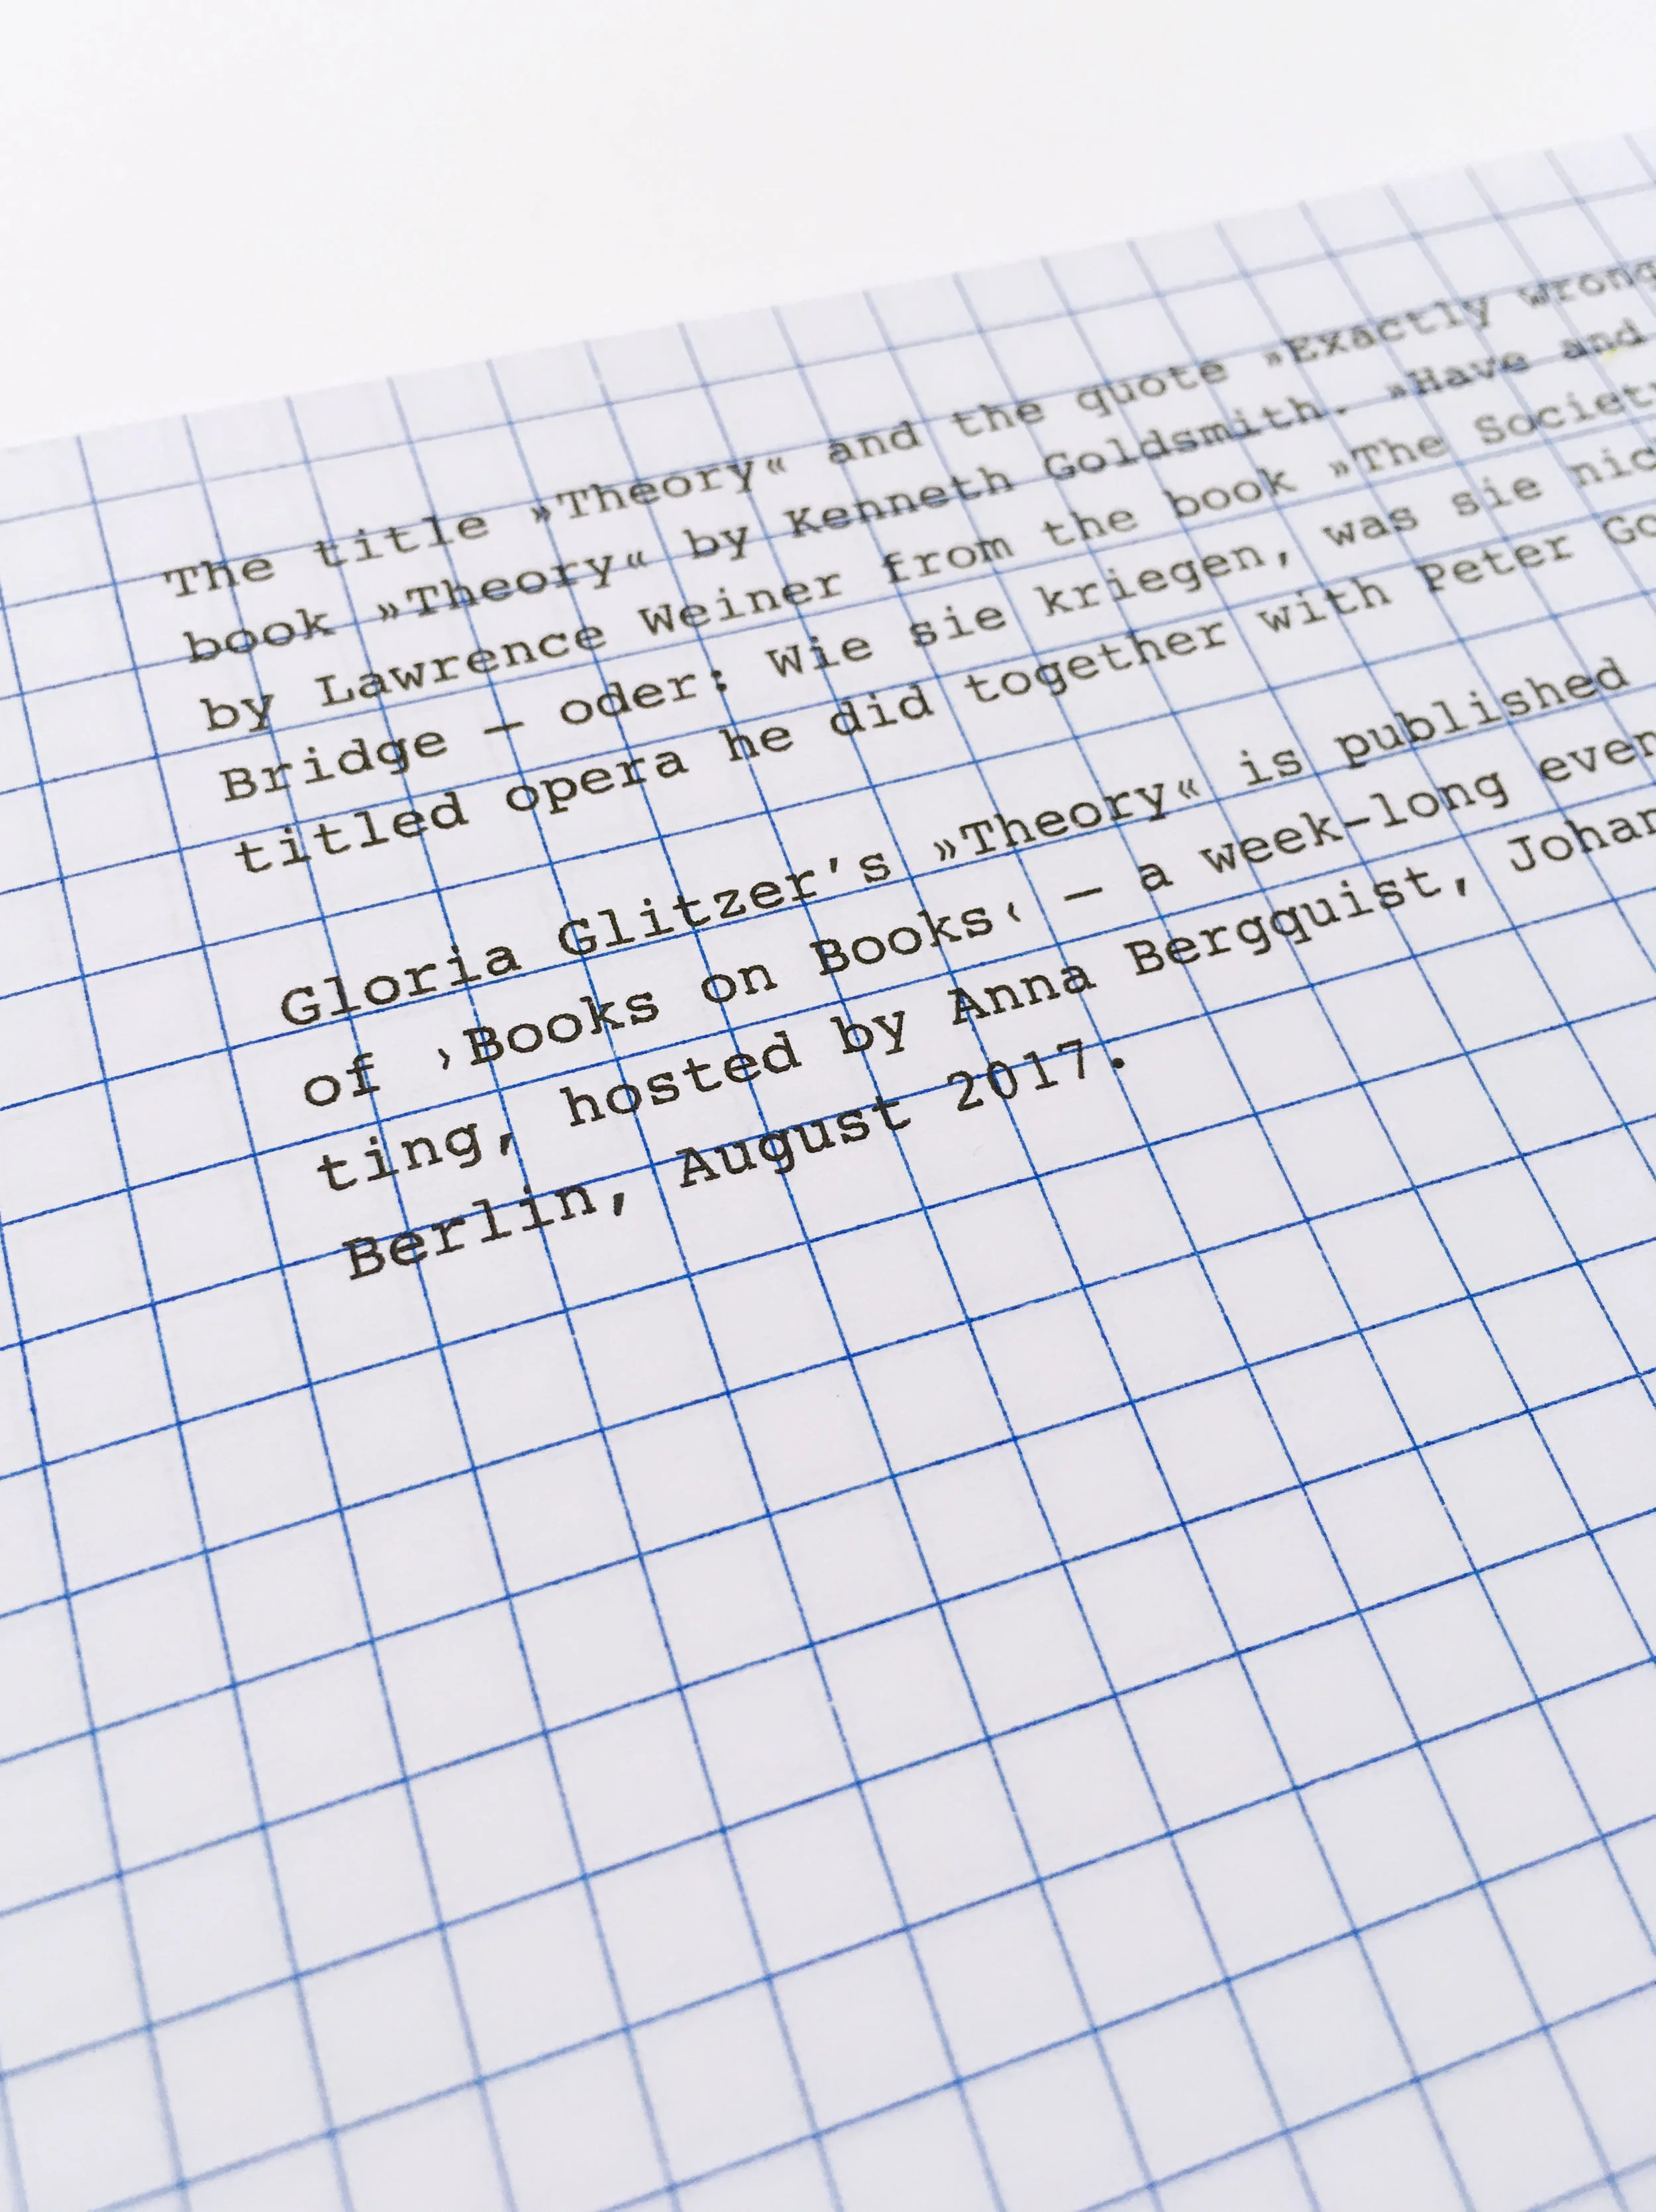 The title »Theory« and the quote »Exactly wrong
book »Theory« by Kenneth Goldsmith. »Have and
by Lawrence Weiner from the book »The Society
Bridge — oder: Wie sie kriegen, was sie
titled opera he did together with Peter
Gloria Glitzer’s »Theory« is published
of ›Books on Books‹ — a week-long
ting, hosted by Anna Bergquist,
Berlin, August 2017.